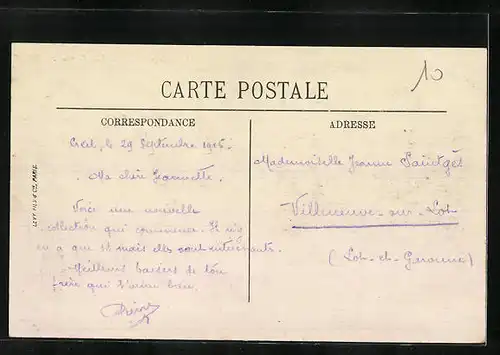 10
CARTE POSTALE
CORRESPONDANCE
ADRESSE
Creil, le 29 Septembre 1915.
Ma chère Jeannette
Voici une nouvelle
collection qui commence. Il n'y
en a que mais elles sont intéressantes.
Meilleurs baisers de ton
frère qui t'aime bien.
Mademoiselle Jeanne
Villeneuve-sur-Lot
(Lot-et-Garonne)
LEVY FILS & Cie, PARIS